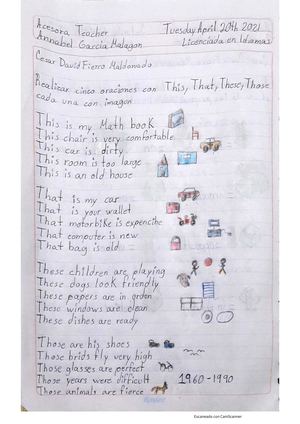 Acesora Teacher Tuesday April 20th 2021
Annabel Garcia Malagon Licenciada en Idiomas
Cesar David Fierro Maldonado
Realizar cinco oraciones con This, That, These, Those
cada una con imagen
This is my Math book
This chair is very comfortable
This car is dirty
This room is too large
This is an old house
That is my car
That is your wallet
That motorbike is expencibe
That computer is new
That bag is old
These children are playing
These dogs look friendly
These papers are in order
These windows are clean
These dishes are ready
Those are his shoes
Those brids fly very high
Those glasses are perfect
Those years were difficult 1960-1990
Those animals are fierce
Escaneado con CamScanner